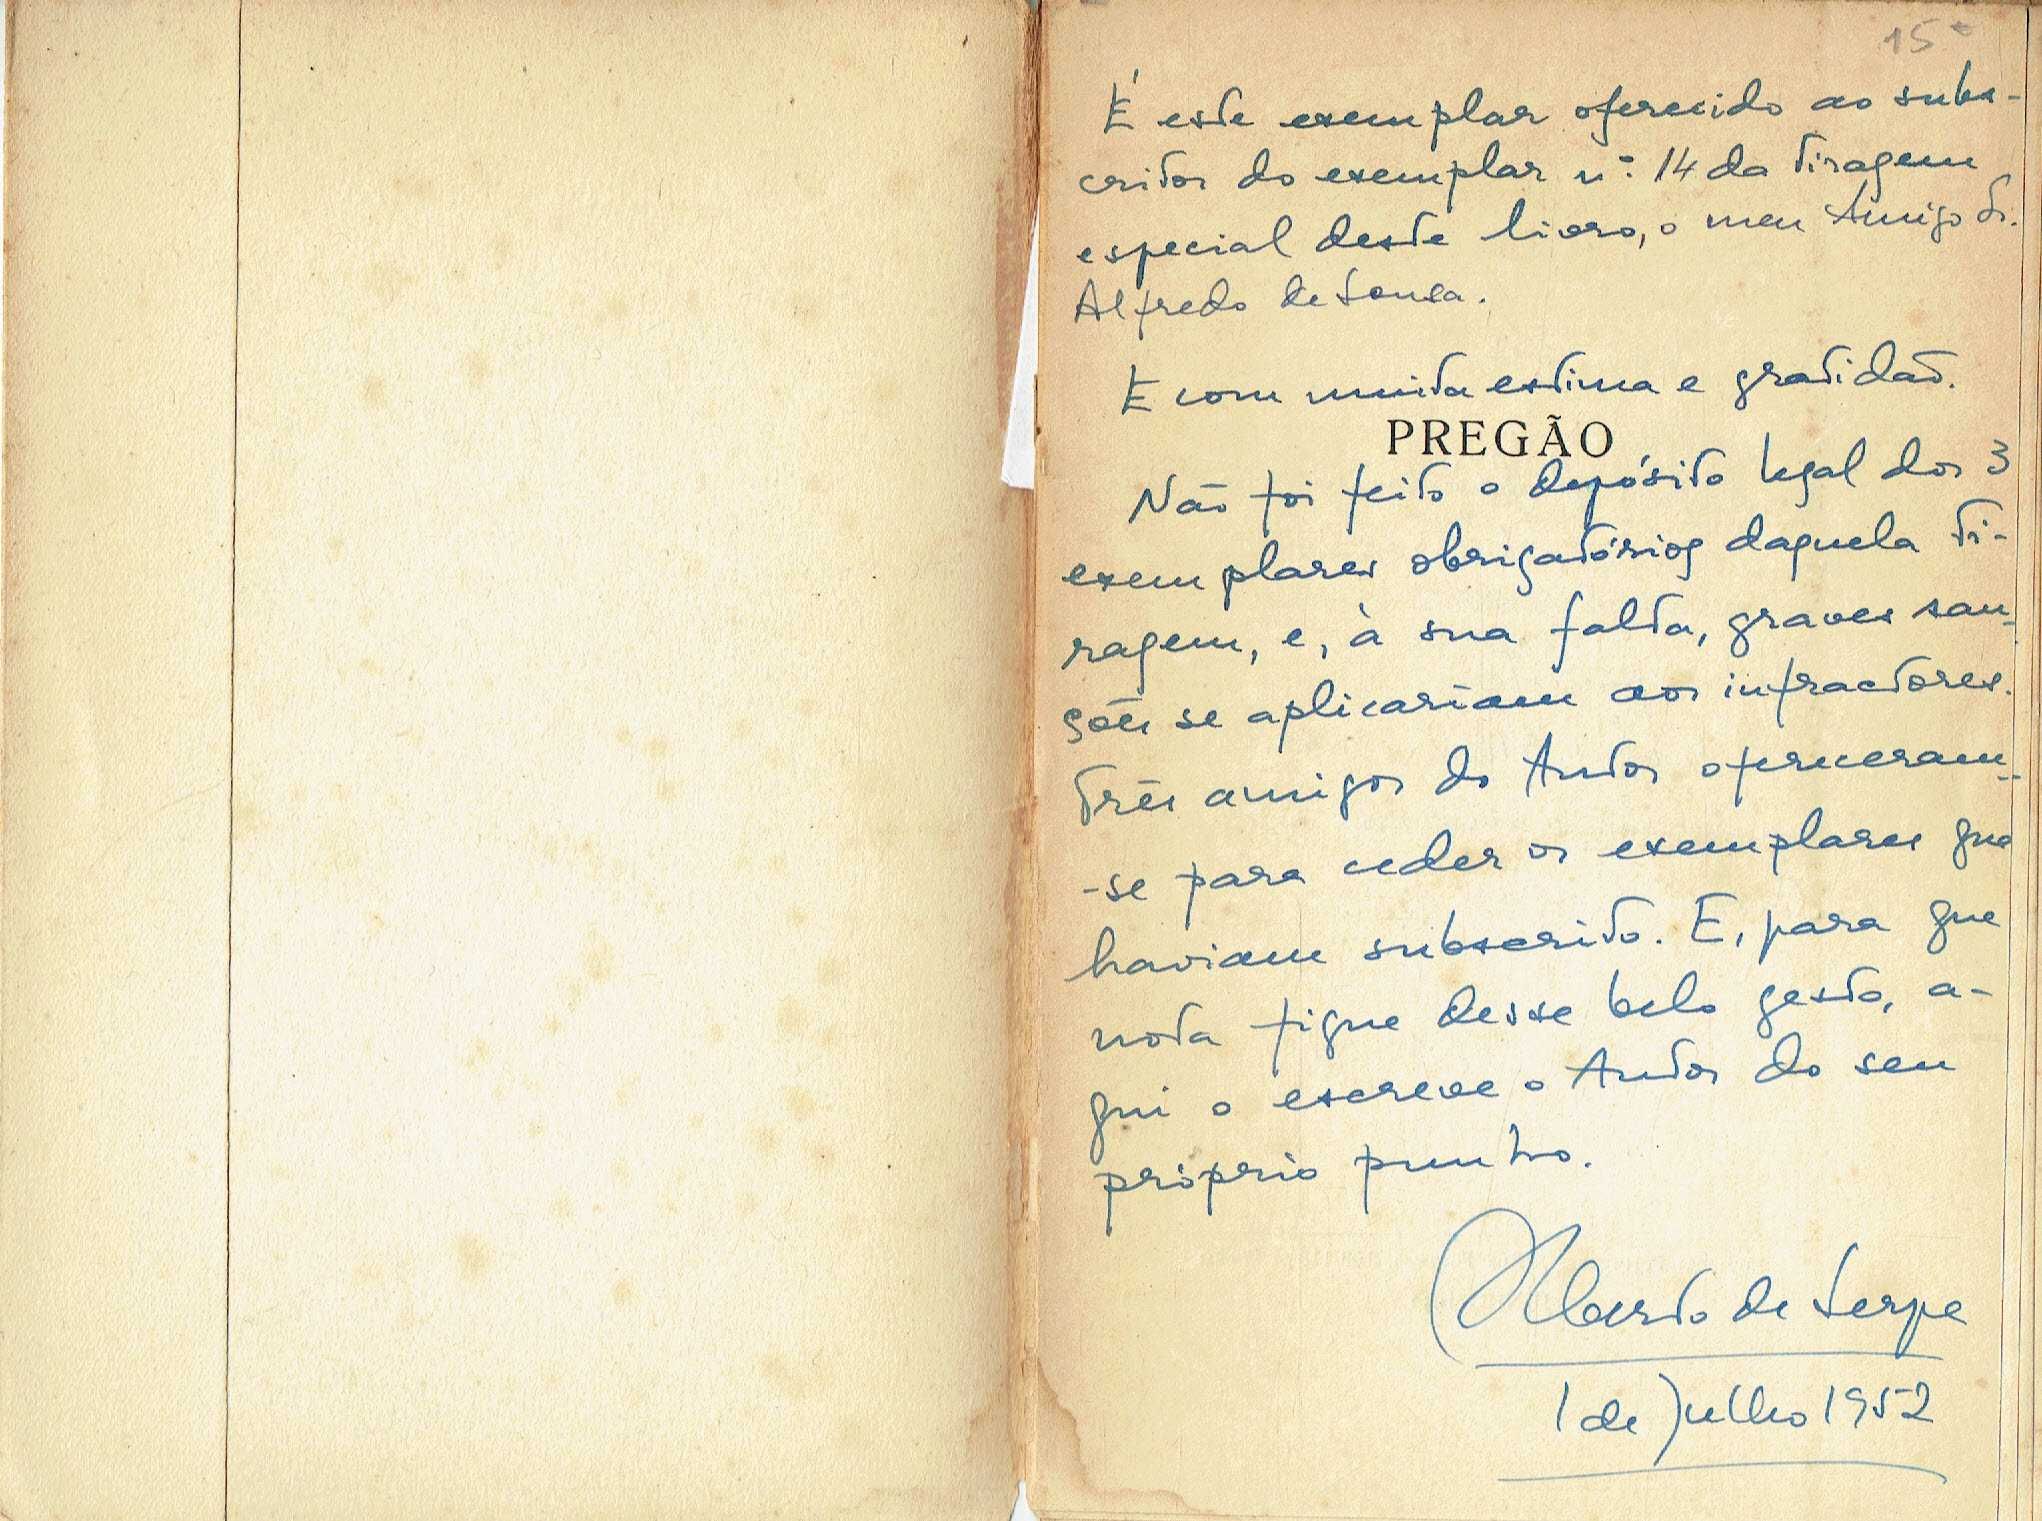 15
É este exemplar oferecido ao subs-
critor do exemplar nº 14 da tiragem
especial deste livro, o meu Amigo Dr.
Alfredo de Sousa.
E com muita estima e gratidão.
PREGÃO
Não foi feito o depósito legal dos 3
exemplares obrigatórios daquela ti-
ragem, e, à sua falta, graves san-
ções se aplicariam aos infractores.
Três amigos do Autor ofereceram-
-se para ceder os exemplares que
haviam subscrito. E, para que
nota fique desse belo gesto, a-
qui o escreve o Autor do seu
próprio punho.
Alberto de Serpa
1 de Julho 1952